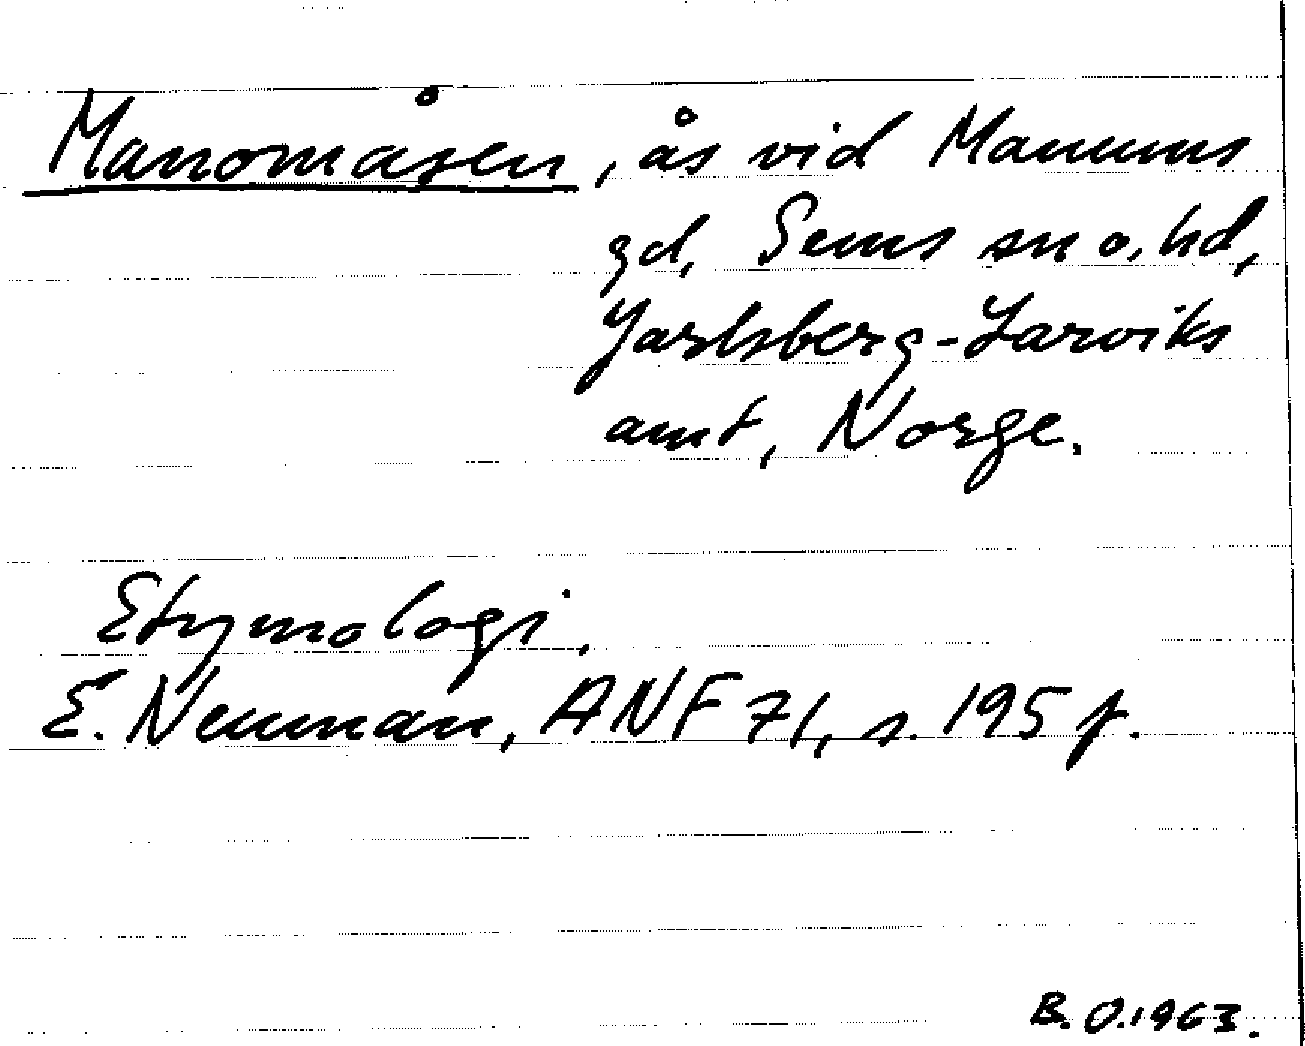 Manomåsen, ås vid Manums
gd, Sems sn o. hd,
Jarlsberg-Larviks
amt, Norge.
Etymologi.
E. Neuman, ANF 71, s. 195 f.
B. O. 1963.